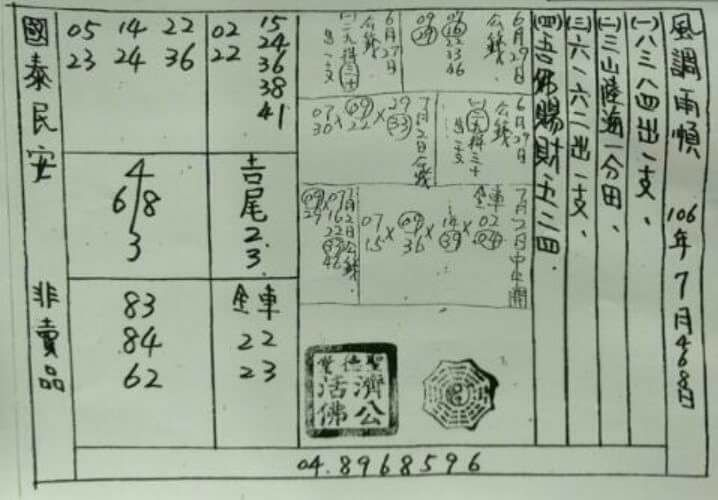 風調雨順 106年7月4.6.8日
(一)八三八四出一支、
(二)三山陸海一分田、
(三)六一六二出一支、
(四)吾佛賜財五二四.
6月27日
公錢
07
16
22
33
46
09
29
6月27日
公錢
(一)二九拜三十
出一支
6月29日
公錢
(一)二九拜三十
出一支
7月2日公錢
29
33
×
09
22
×
07
30
7月2日中生開
車
02
04
×
14
39
×
09
36
×
07
15
7月2日公錢
07
16
22
33
46
09
29
聖德堂
濟公
活佛
15
24
36
38
41
02
22
22
36
14
24
05
23
吉尾
2.
3.
4
6/8
3
車
22
23
83
84
62
國泰民安 非賣品
04.8968596